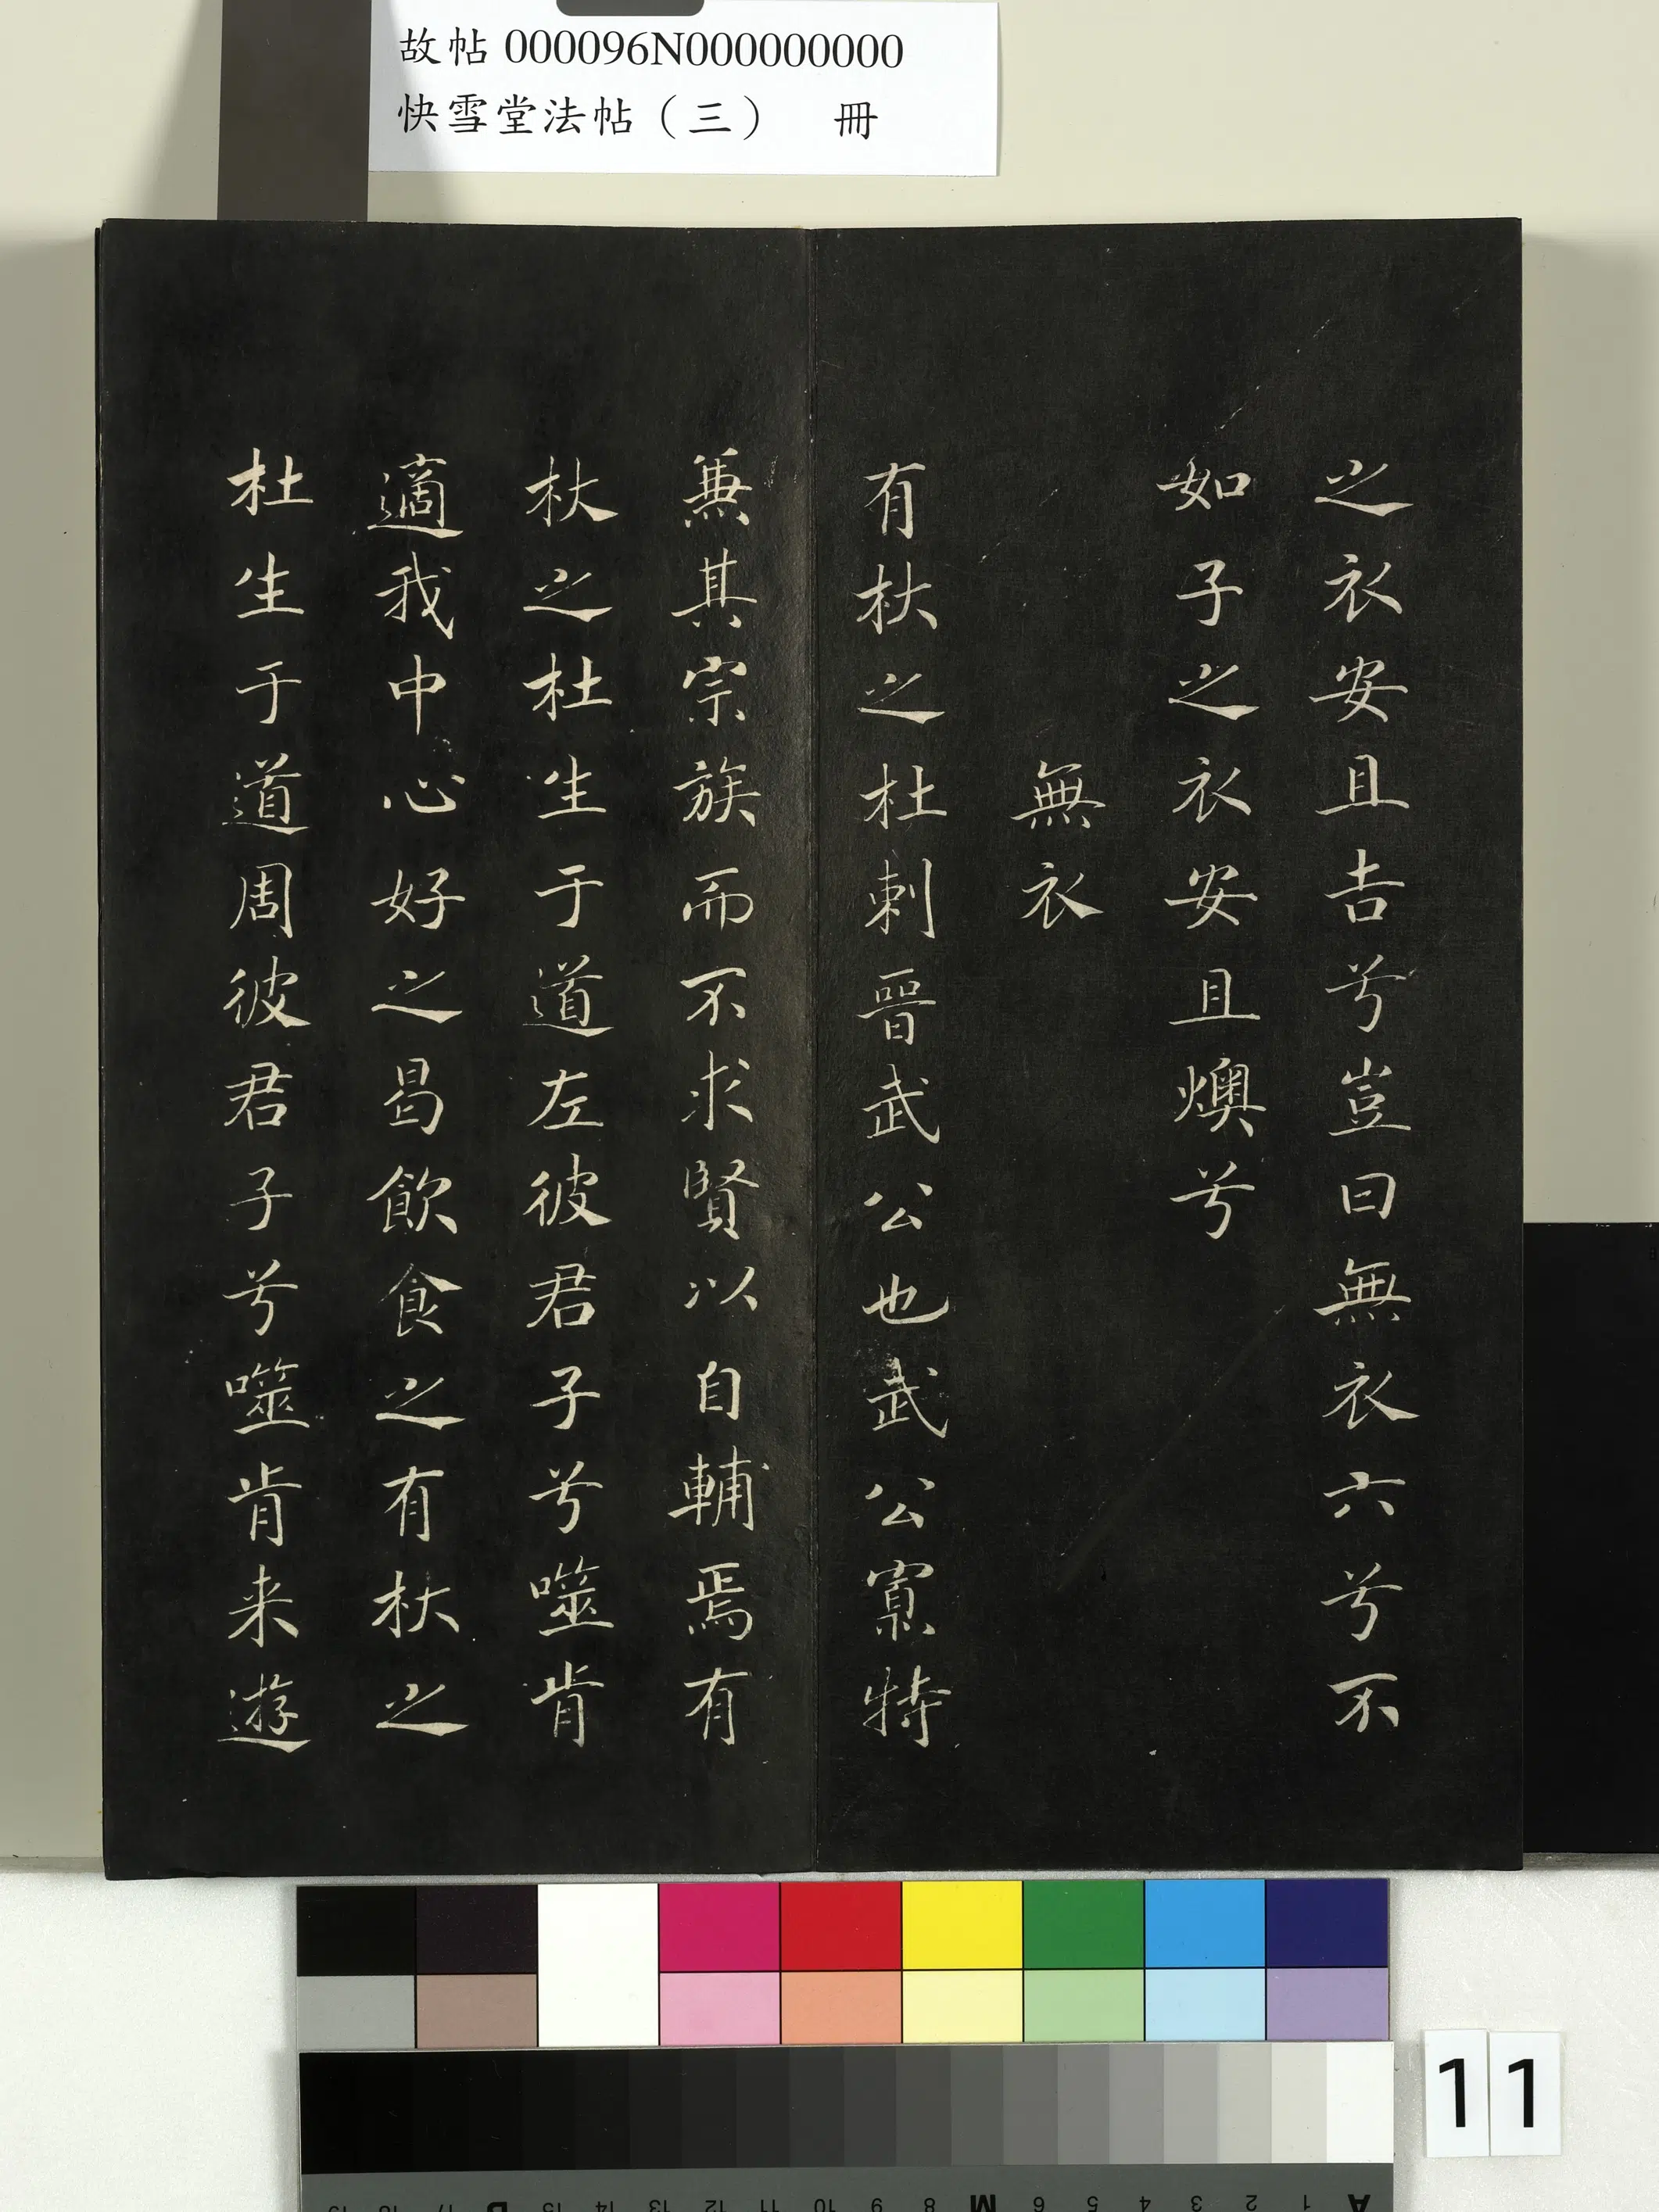 故帖 000096N000000000
快雪堂法帖（三） 冊
之衣安且吉兮豈曰無衣六兮不
如子之衣安且燠兮
無衣
有杕之杜刺晉武公也武公寡特
兼其宗族而不求賢以自輔焉有
杕之杜生于道左彼君子兮噬肯
適我中心好之曷飲食之有杕之
杜生于道周彼君子兮噬肯来遊
11
A 1 2 3 4 5 6 M 8 9 10 11 12 13 14 15 B 17 18 19